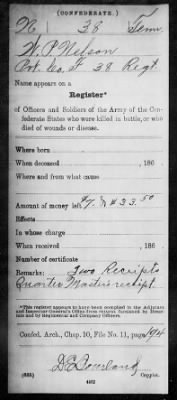 (CONFEDERATE.)
N 38 Tenn.
W. P. Nelson
Pvt. Co. F. 38 Regt.
Name appears on a
Register*
of Officers and Soldiers of the Army of the Con-
federate States who were killed in battle, or who
died of wounds or disease.
Where born
When deceased , 186
Where and from what cause
Amount of money left $7. & $33.50
Effects
In whose charge
When received , 186
Number of certificate
Remarks: Two Receipts
Quarter Master's receipt
*This register appears to have been compiled in the Adjutant
and Inspector General's Office from returns furnished by Hospi-
tals and by Regimental and Company Officers.
Confed. Arch., Chap. 10, File No. 11, page 194
Copyist.
(635)